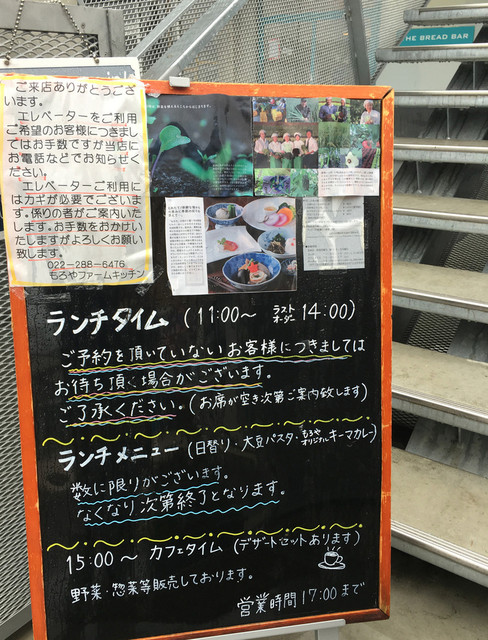 HE BREAD BAR
ご来店ありがとうござ
います。
エレベーターをご利用
ご希望のお客様につきまし
てはお手数ですが当店に
お電話などでお知らせく
ださい。
エレベーターご利用に
はカギが必要でございま
す。係りの者がご案内いた
します。お手数をおかけい
たしますがよろしくお願い
致します。
022-288-6476
もろやファームキッチン
ランチタイム (11:00〜 ラストオーダー 14:00)
ご予約を頂いていないお客様につきましては
お待ち頂く場合がございます。
ご了承ください。(お席が空き次第ご案内致します)
ランチメニュー (日替り・大豆パスタ・もろやオリジナルキーマカレー)
数に限りがございます。
なくなり次第終了となります。
15:00〜 カフェタイム (デザートセットあります)
野菜・惣菜等販売しております。
営業時間17:00まで